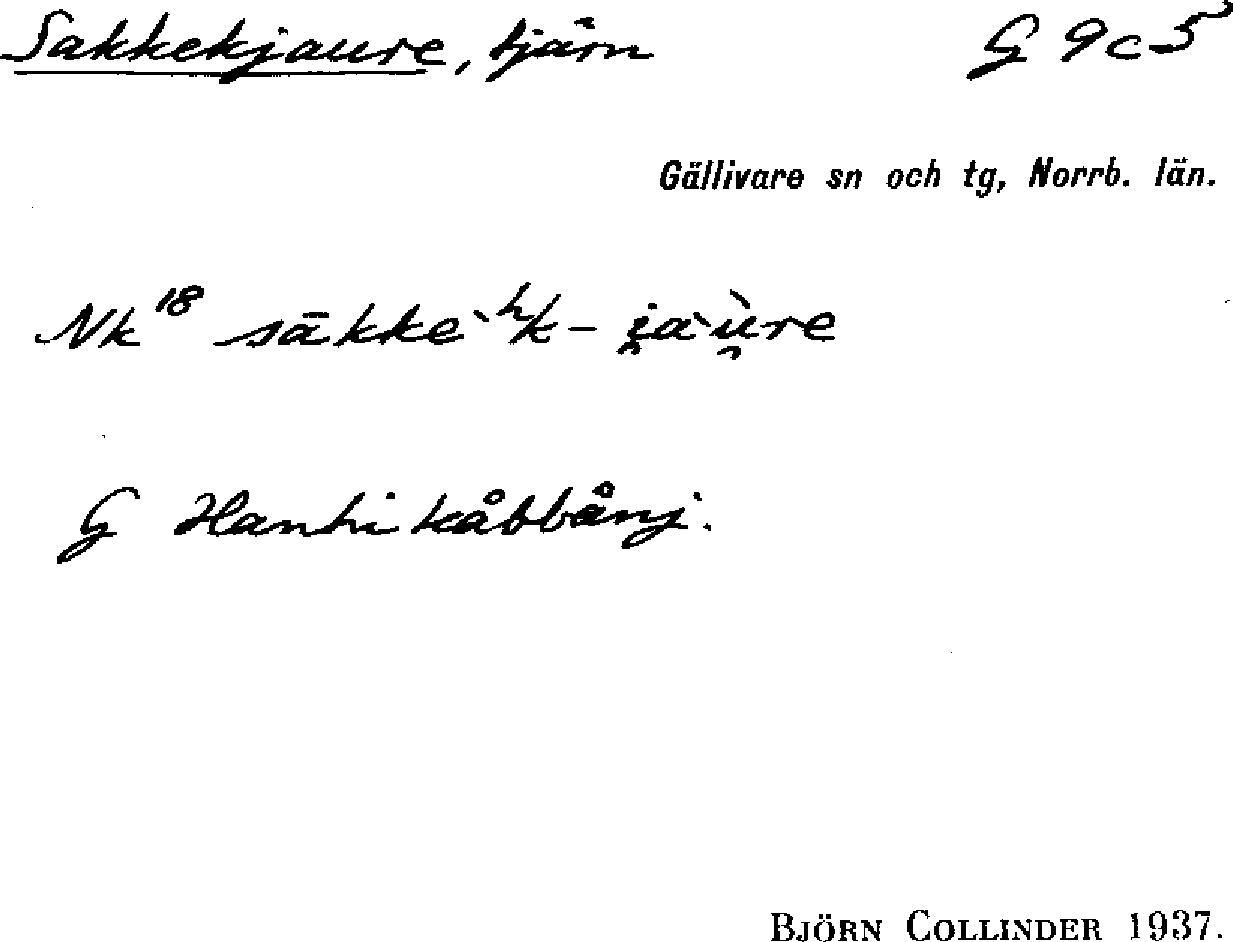 Sakkekjaure, tjärn G 9c5
Gällivare sn och tg, Norrb. län.
Nk¹⁸ sākke`ʰk- i̯a`ù̯re
G Hanhi kåbbånj.
BJÖRN COLLINDER 1937.